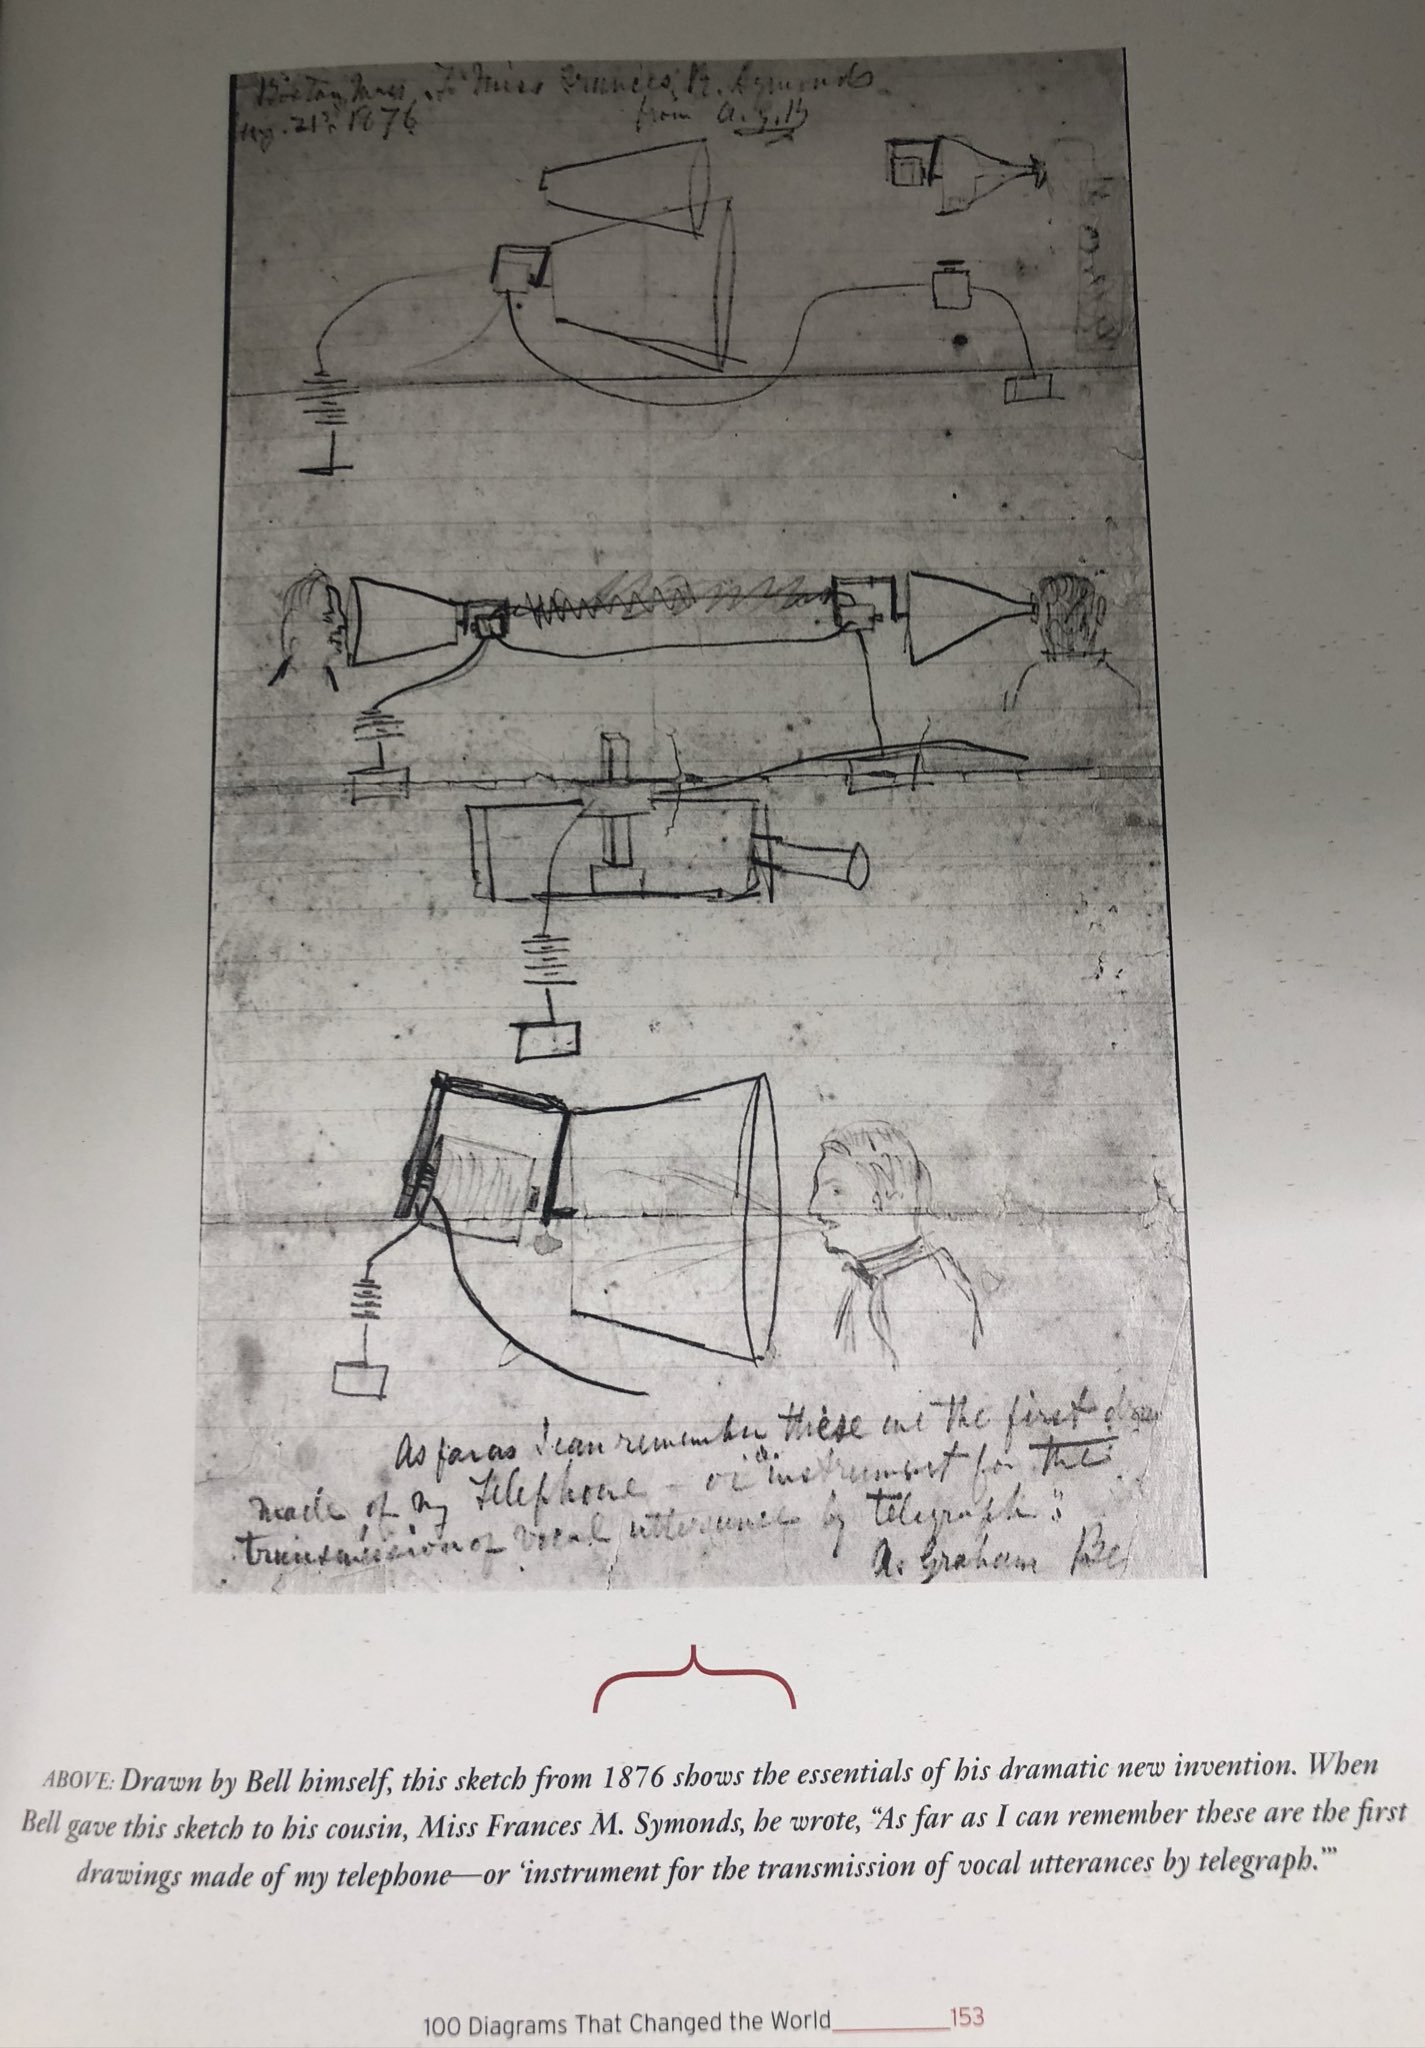 Boston, Mass. To Miss Frances M. Symonds.
Aug. 21st 1876 from A.G.B
As far as I can remember these are the first
made of my telephone - or "instrument for the
transmission of vocal utterances by telegraph":
A. Graham Bell
ABOVE: Drawn by Bell himself, this sketch from 1876 shows the essentials of his dramatic new invention. When
Bell gave this sketch to his cousin, Miss Frances M. Symonds, he wrote, “As far as I can remember these are the first
drawings made of my telephone—or ‘instrument for the transmission of vocal utterances by telegraph.’”
100 Diagrams That Changed the World 153